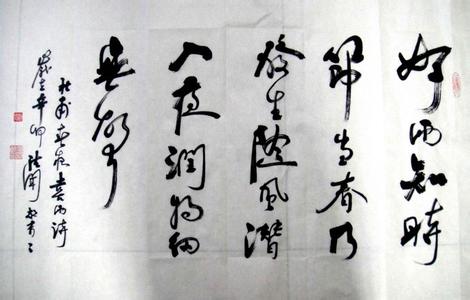 好雨知時
節当春乃
發生隨風潜
入夜潤物細
無聲
杜甫春夜喜雨诗
歲在辛卯